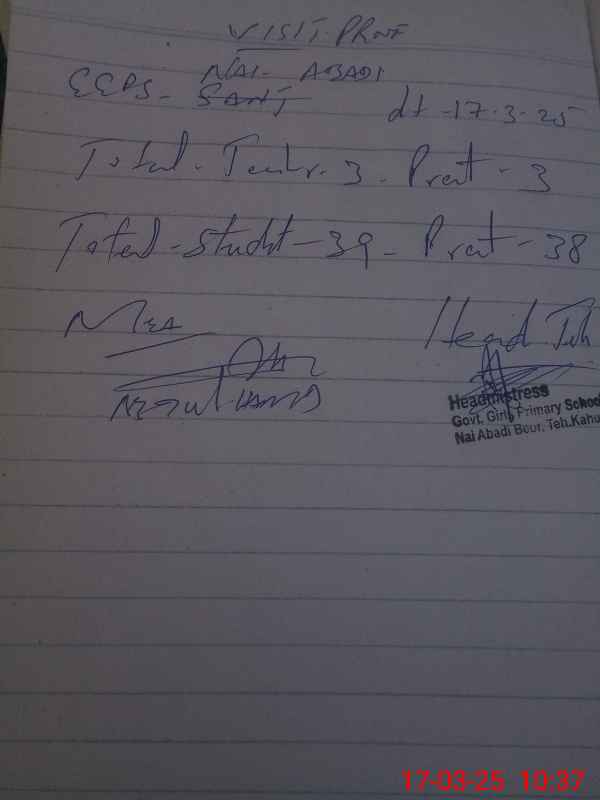 VISIT PROOF
NAI - ABADI
GGPS - SANJ dt - 17-3-25
Total - Teachr - 3 - Prcat - 3
Total - Studnt - 39 - Prcat - 38
MEA Head Tch
Headmistress
Govt. Girls Primary School
Nai Abadi Beor. Teh.Kahu
17-03-25 10:37